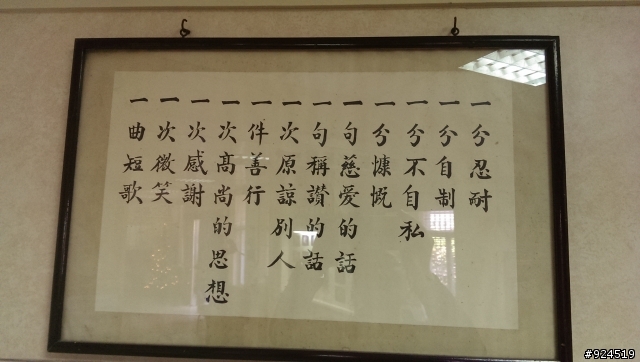 一分忍耐
一分自制
一分不自私
一分慷慨
一句慈愛的話
一句稱讚的話
一次原諒別人
一件善行
一次高尚的思想
一次感謝
一次微笑
一曲短歌
#924519